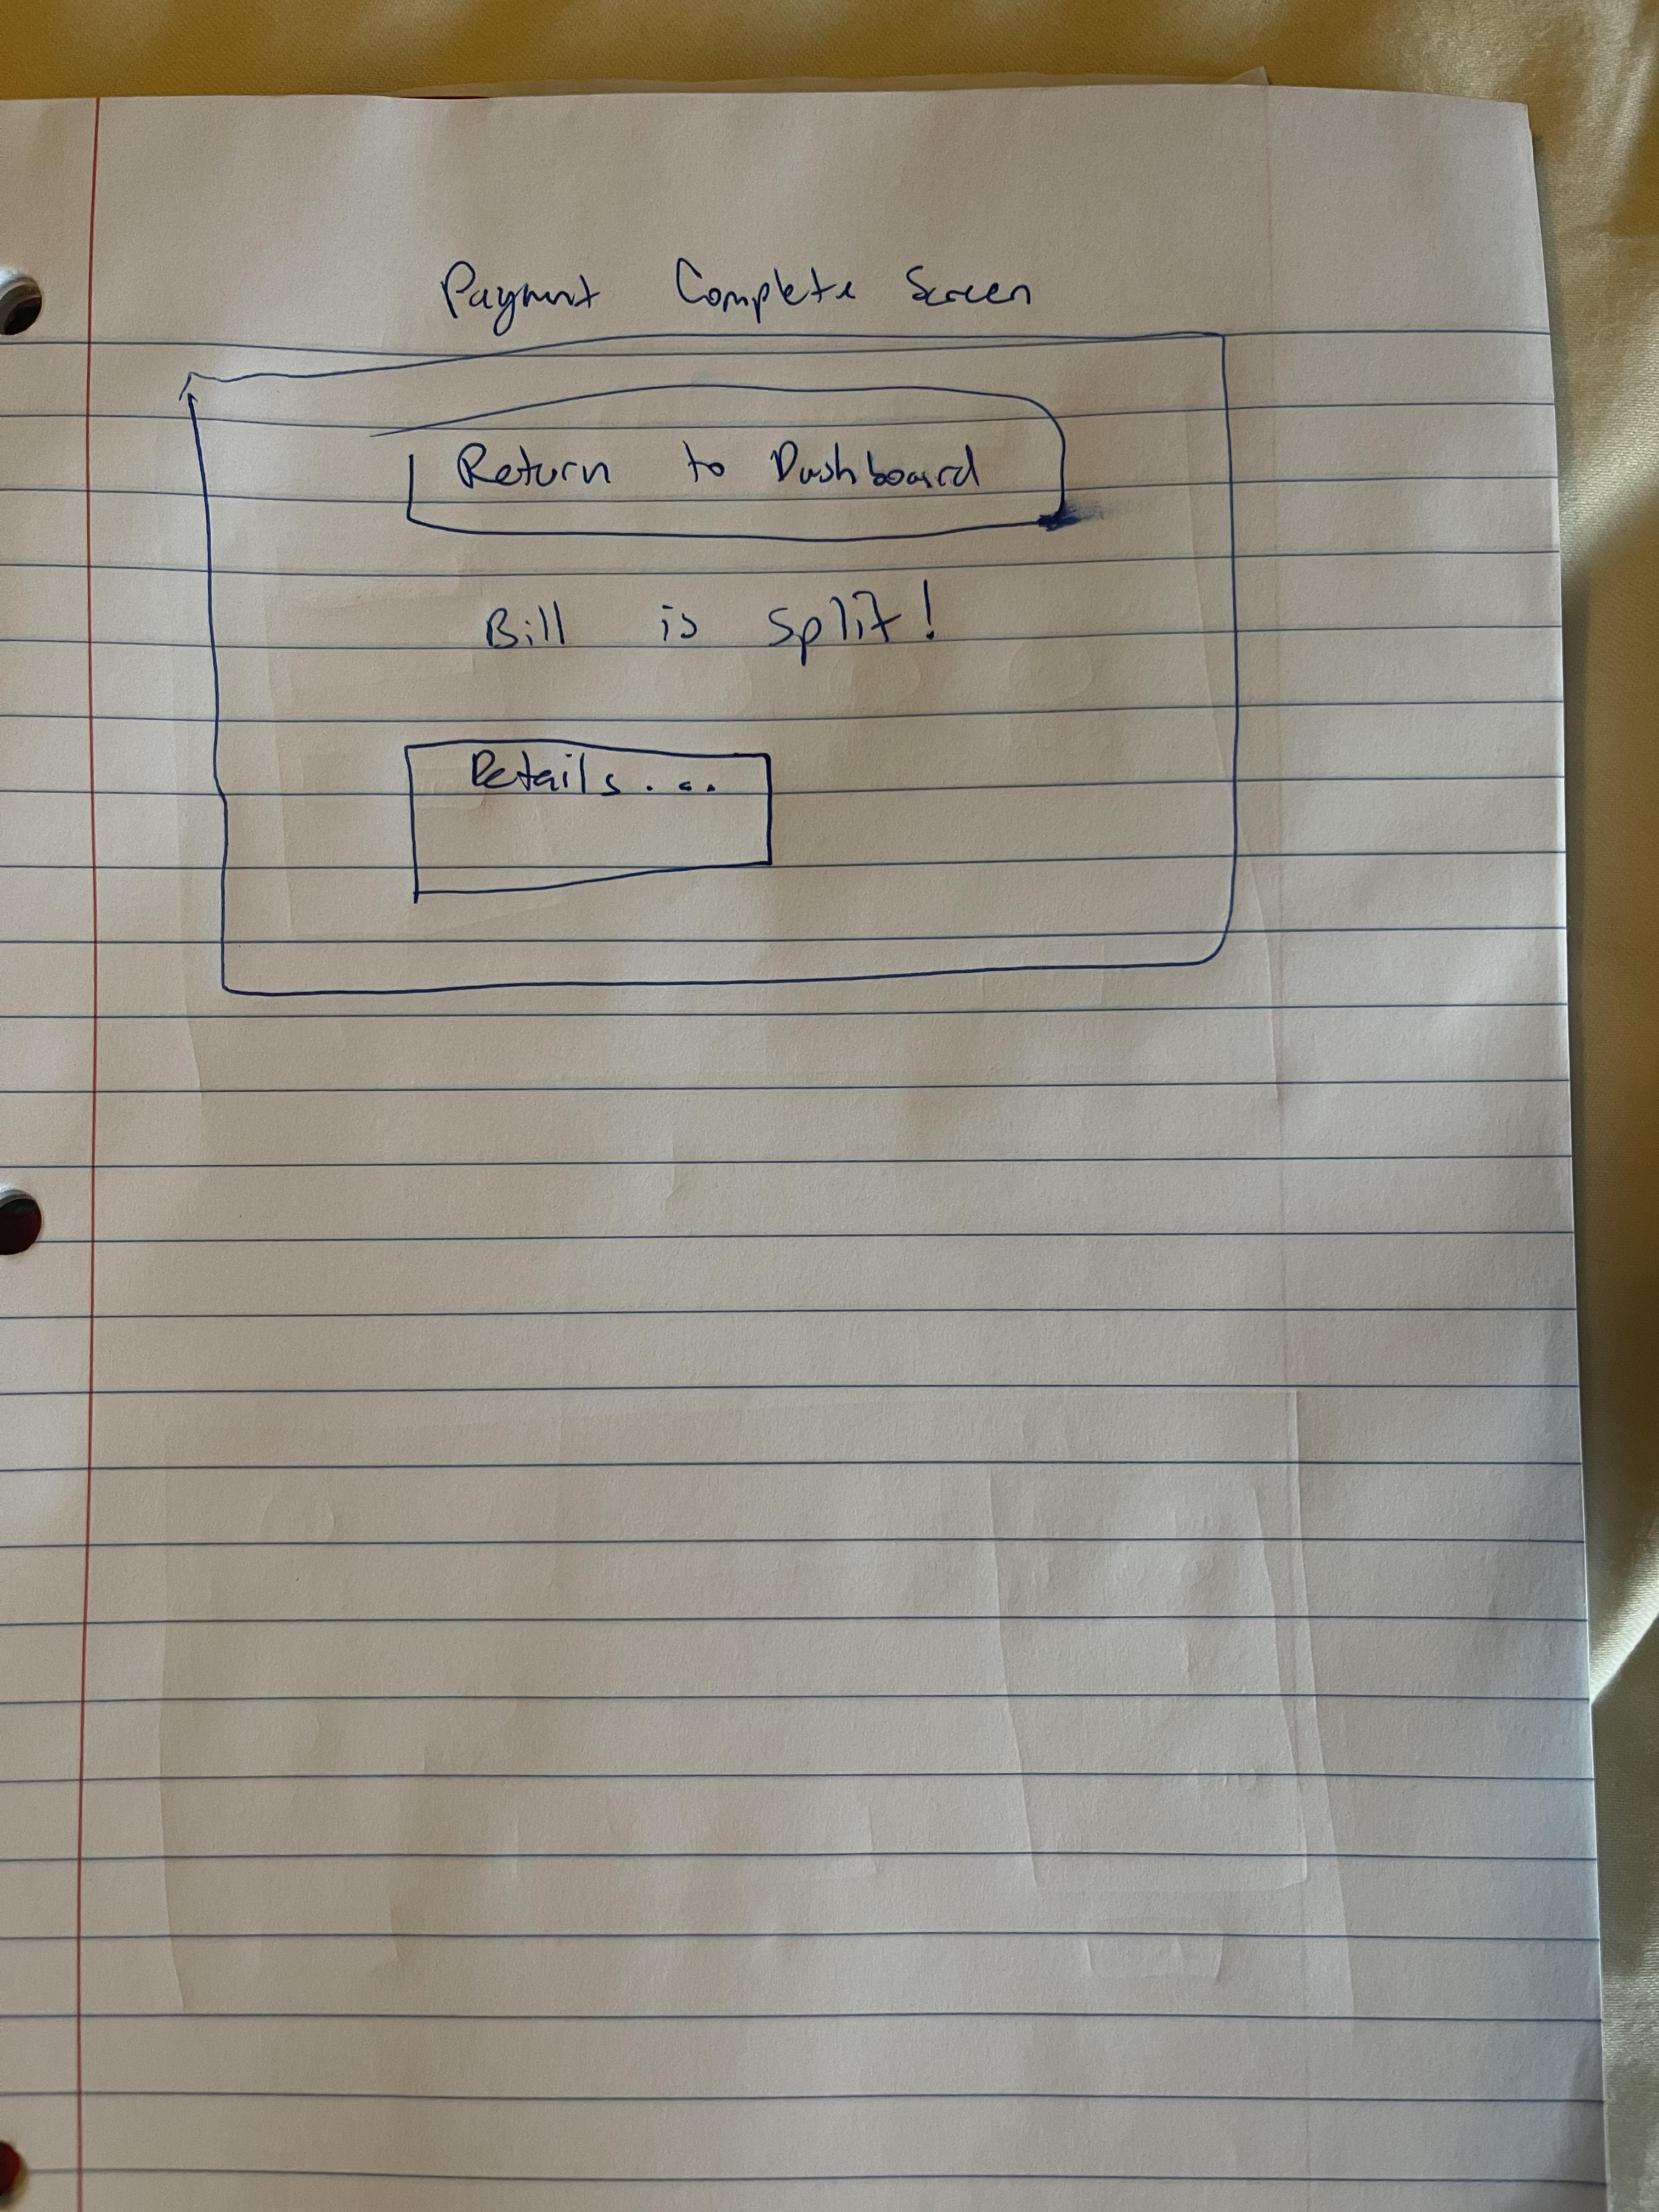 Payment Complete Screen
Return to Dashboard
Bill is split!
Details....